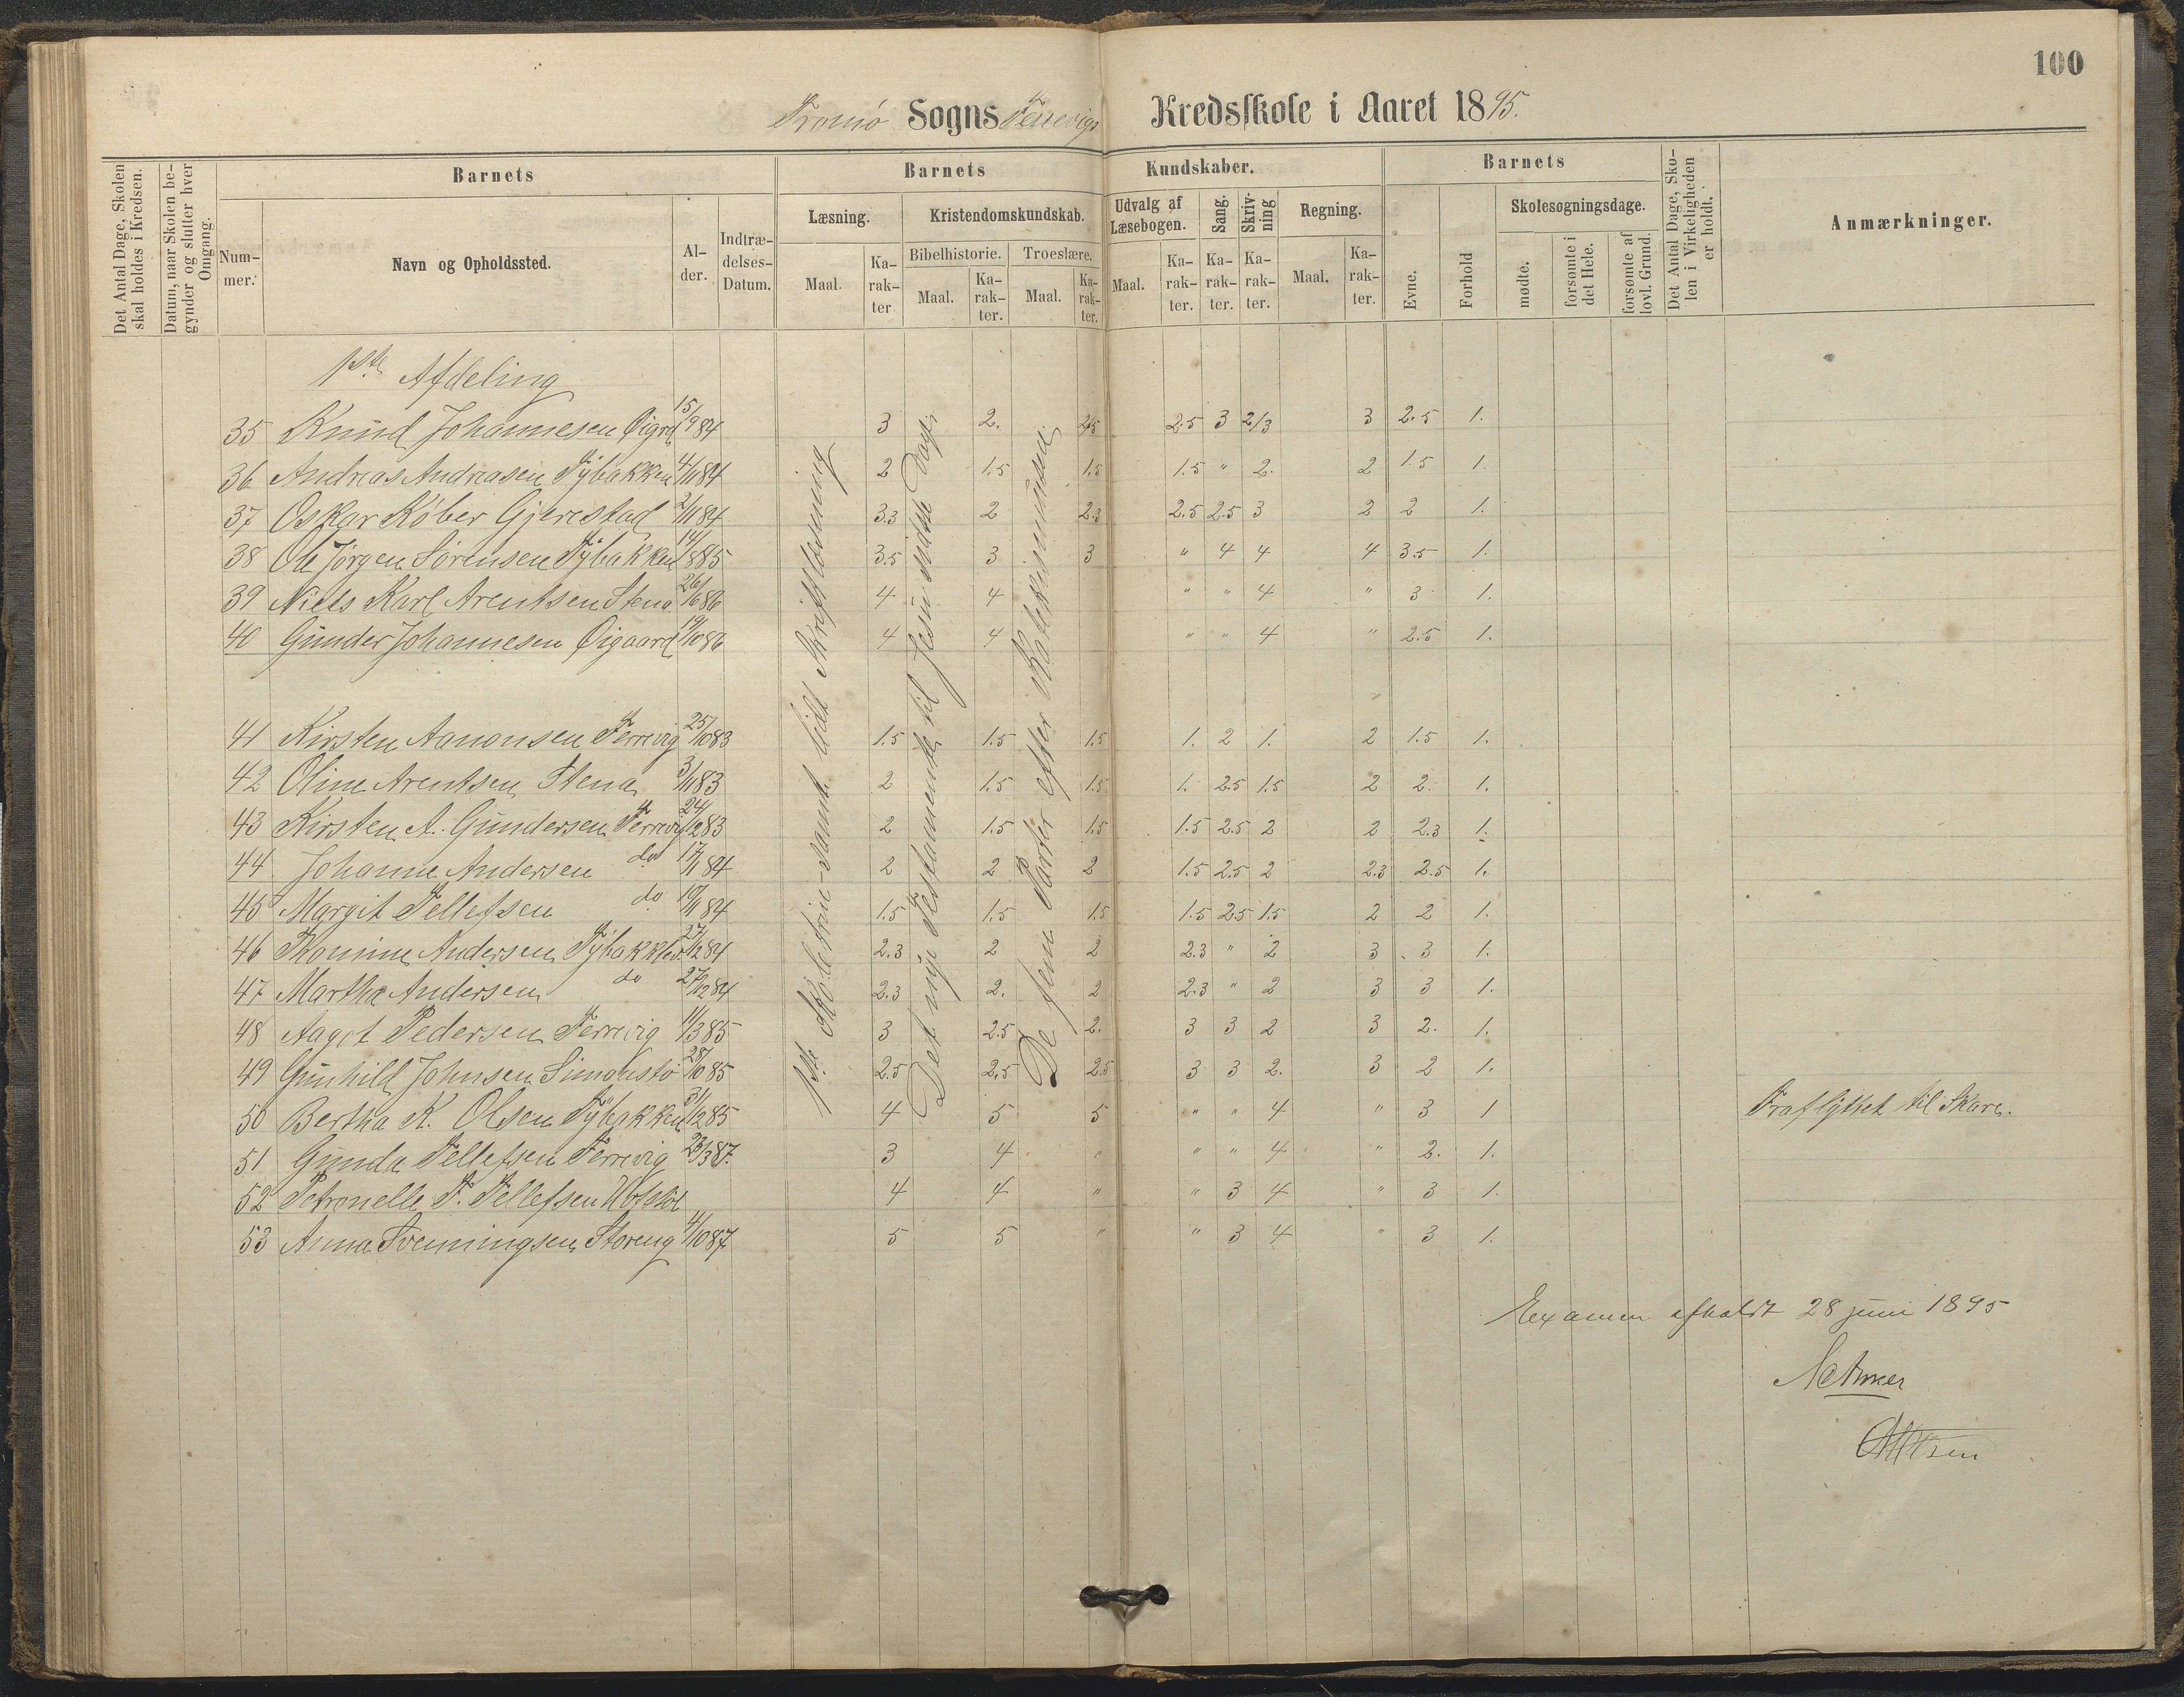 100
Tromø Sogns Færevigs Kredsskole i Aaret 1895.
Det Antal Dage, Skolen skal holdes i Kredsen.
Datum, naar Skolen begynder og slutter hver Omgang.
Barnets
Nummer.
Navn og Opholdssted.
Alder.
Indtrædelses-Datum.
Barnets Kundskaber.
Læsning.
Maal.
Karakter.
Kristendomskundskab.
Bibelhistorie.
Maal.
Karakter.
Troeslære.
Maal.
Karakter.
Udvalg af Læsebogen.
Maal.
Karakter.
Sang.
Karakter.
Skrivning
Karakter.
Regning.
Maal.
Karakter.
Barnets
Evne.
Forhold
Skolesøgningsdage.
mødte.
forsømte i det Hele.
forsømte af lovl. Grund.
Det Antal Dage, Skolen i Virkeligheden er holdt.
Anmærkninger.
1ste Afdeling
35 Knud Johannesen Øigrd 15/9 84 3 2. 2.5 2.5 3 2/3 3 2.5 1.
36 Andreas Andreasen Tybakken 4/11 84 2 1.5 1.5 1.5 " 2. 2 1.5 1.
37 Oskar Køber Gjerestad 2/11 84 3.3 2 2.3 2.5 2.5 3 2 2 1.
38 Ole Jørgen Sørensen Tybakken 14/8 85 3.5 3 3 " 4 4 4 3.5 1.
39 Niels Karl Arentsen Stena 26/6 86 4 4 " " 4 " 3 1.
40 Gunder Johannesen Øigaard 19/10 86 4 4 " " 4 " 2.5 1.
41 Kirsten Aanonsen Færevig 25/10 83 1.5 1.5 1.5 1. 2 1. 2 1.5 1.
42 Oline Arentsen Stena 3/11 83 2 1.5 1.5 1. 2.5 1.5 2 2. 1.
43 Kirsten A. Gundersen Færevig 24/12 83 2 1.5 1.5 1.5 2.5 2 2 2.3 1.
44 Johanne Andersen do 17/1 84 2 2 2 1.5 2.5 2 2.3 2.5 1.
45 Margit Tellefsen do 10/11 84 1.5 1.5 1.5 1.5 2.5 1.5 2 2 1.
46 Thomine Andersen Tybakken 27/12 84 2.3 2 2 2.3 " 2 3 3 1.
47 Martha Andersen do 27/12 84 2.3 2. 2 2.3 " 2 3 3 1.
48 Aagot Pedersen Færevig 11/3 85 3 2.5 2. 3 3 2 3 2. 1.
49 Gunhild Johnsen Simonstø 28/10 85 2.5 2.5 2.5 3 3 2. 3 2 1.
50 Bertha K. Olsen Tybakken 31/12 85 4 5 5 " " 4 " 3 1 Fraflyttet til Skare.
51 Gunda Tellefsen Færevig 23/3 87. 3 4 " " " 4 " 2. 1.
52 Petronelle T. Tellefsen 4 4 " " 3 4 " 3 1.
53 Anna Svenningsen Storeng 4/10 87 5 5 " " 3 4 " 3 1.
1ste Skoletrin samt lidt Skriftlæsning
Det nye Testamente til Jesu sidste Dage
De fem Parter efter Katekismusen.
Examen afholdt 28 juni 1895